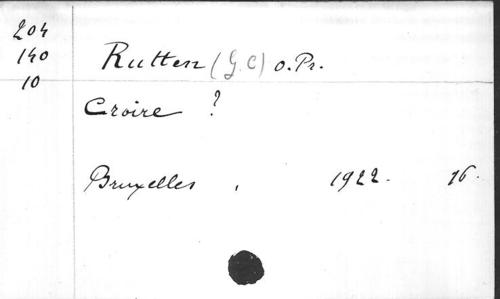 204
140
10
Rutten (G.C) o.Pr.
Croire ?
Bruxelles , 1922. 16.